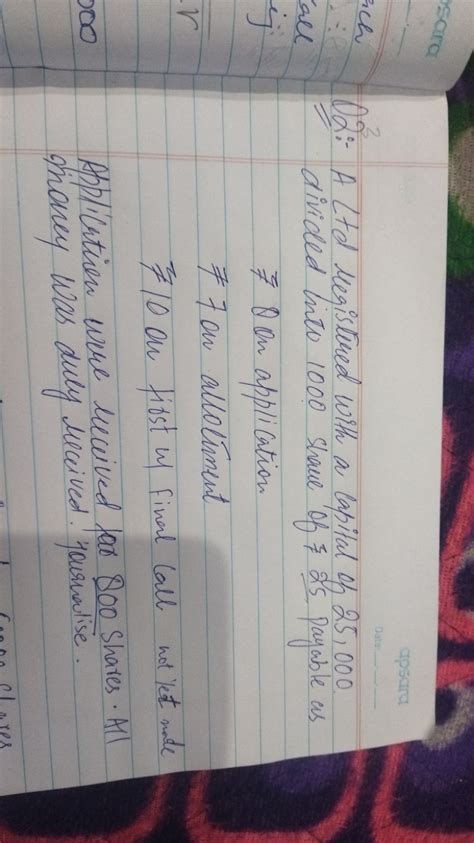 apsara
Date:
Q2:- A Ltd registered with a capital of 25,000
divided into 1000 share of ₹ 25 payable as
₹ 8 on application
₹ 7 on allotment
₹ 10 on first & final call not yet made
Application were received for 800 shares. All
money was duly received. Journalise.
apsara
000